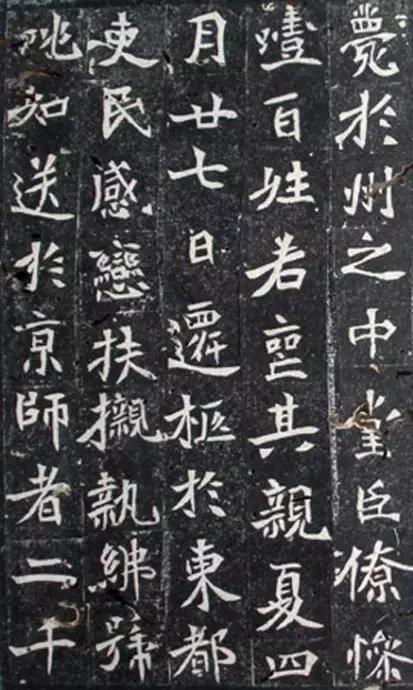 薨於州之中堂臣僚慘
噎百姓若喪其親夏四
月廿七日遷柩於東都
吏民感戀扶櫬執紼號
咷如送於京師者二千